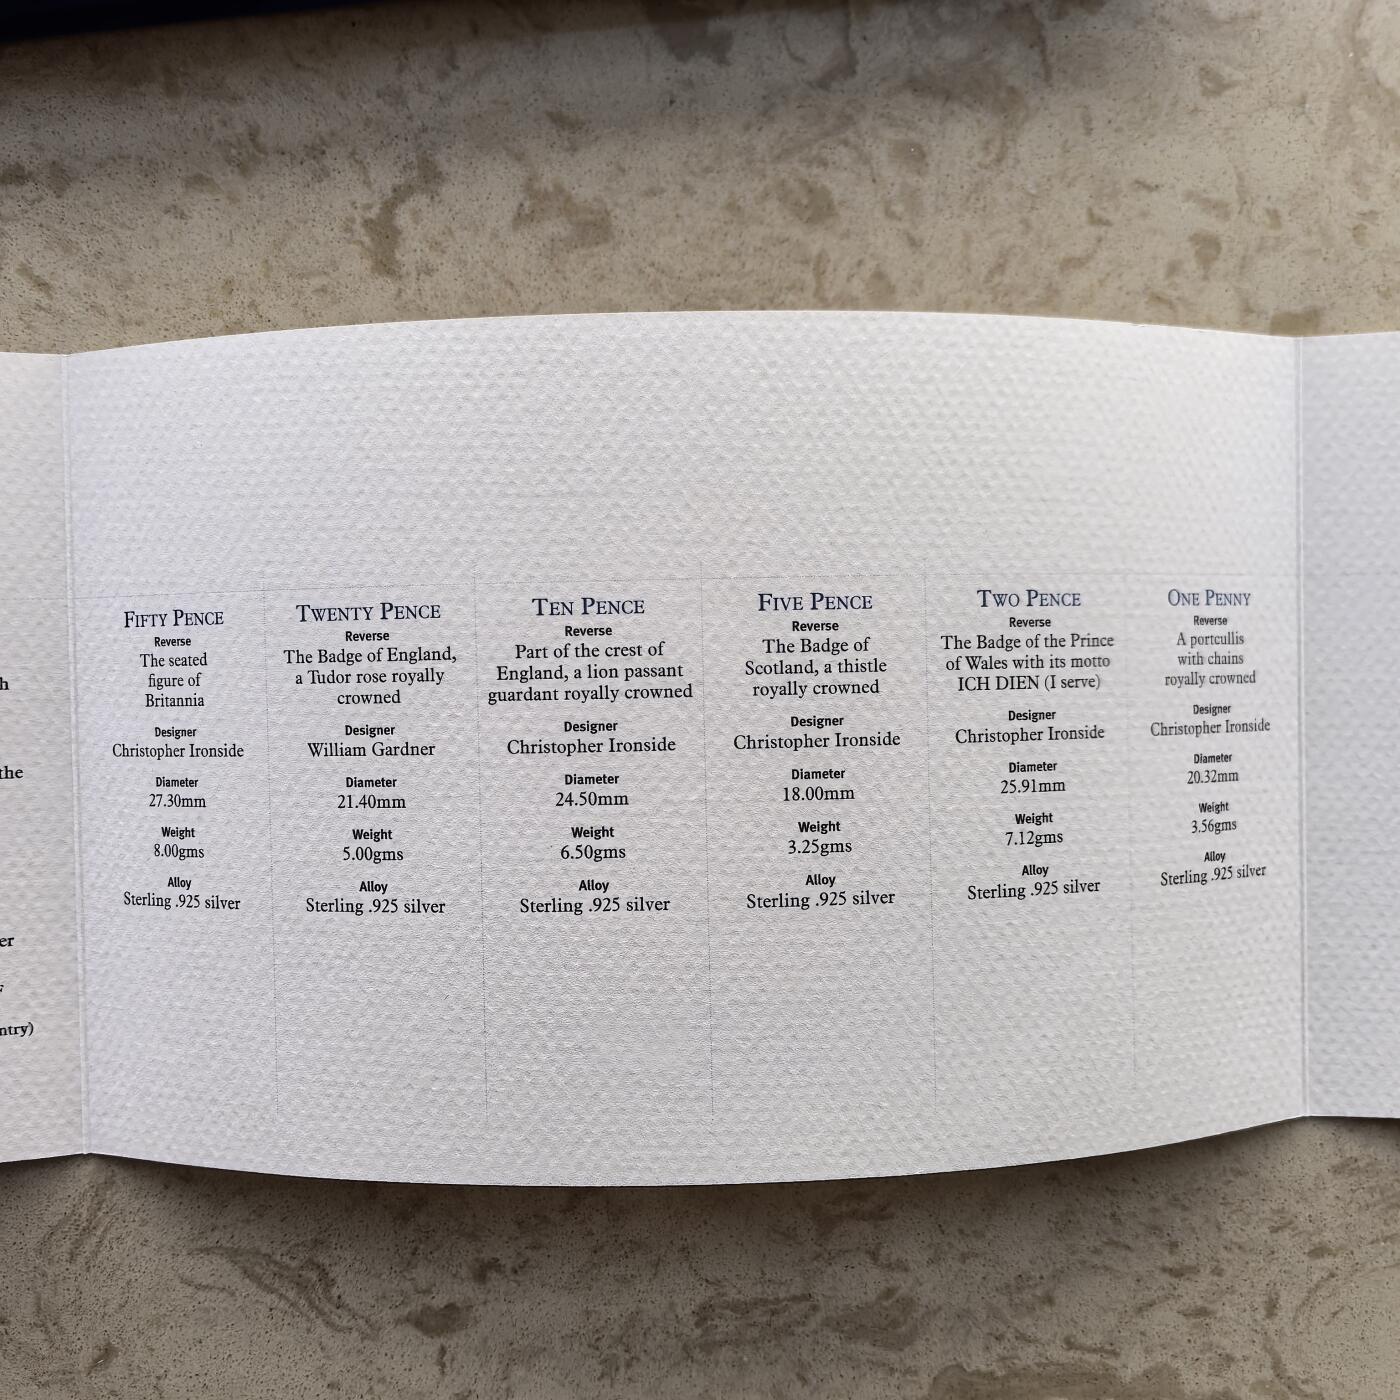 h
the
er
F
ntry)
FIFTY PENCE
Reverse
The seated
figure of
Britannia
Designer
Christopher Ironside
Diameter
27.30mm
Weight
8.00gms
Alloy
Sterling .925 silver
TWENTY PENCE
Reverse
The Badge of England,
a Tudor rose royally
crowned
Designer
William Gardner
Diameter
21.40mm
Weight
5.00gms
Alloy
Sterling .925 silver
TEN PENCE
Reverse
Part of the crest of
England, a lion passant
guardant royally crowned
Designer
Christopher Ironside
Diameter
24.50mm
Weight
6.50gms
Alloy
Sterling .925 silver
FIVE PENCE
Reverse
The Badge of
Scotland, a thistle
royally crowned
Designer
Christopher Ironside
Diameter
18.00mm
Weight
3.25gms
Alloy
Sterling .925 silver
TWO PENCE
Reverse
The Badge of the Prince
of Wales with its motto
ICH DIEN (I serve)
Designer
Christopher Ironside
Diameter
25.91mm
Weight
7.12gms
Alloy
Sterling .925 silver
ONE PENNY
Reverse
A portcullis
with chains
royally crowned
Designer
Christopher Ironside
Diameter
20.32mm
Weight
3.56gms
Alloy
Sterling .925 silver